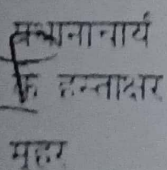 प्रधानाचार्य
के हस्ताक्षर
मुहर